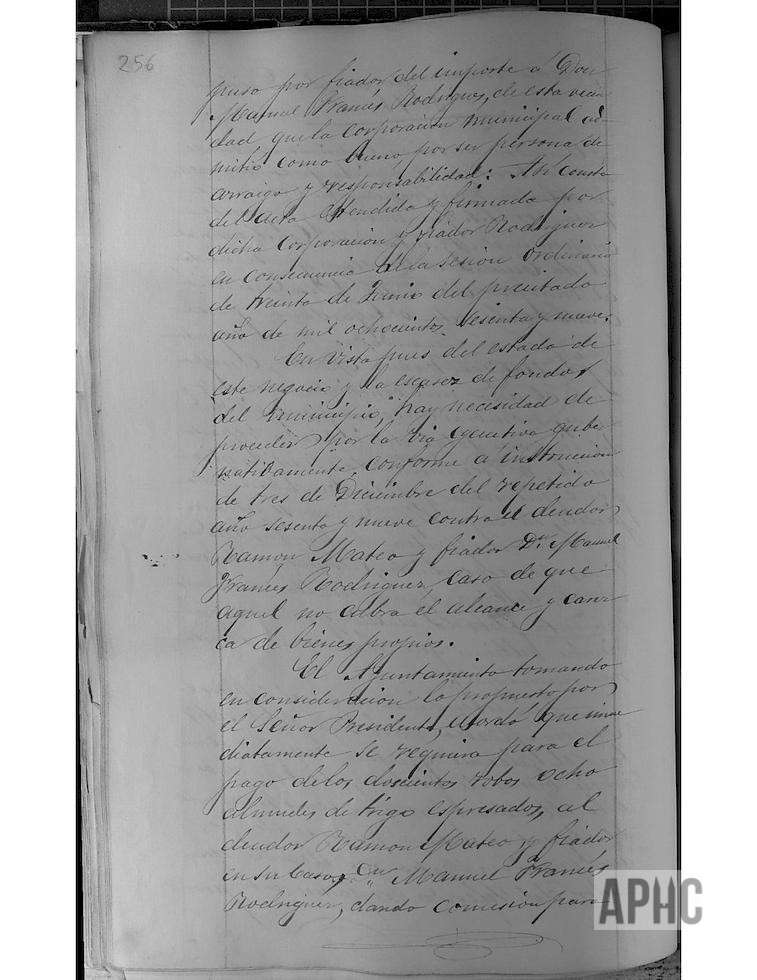 256
puso por fiador del importe á Don
Manuel Francés Rodrigues, de esta vecin
dad que la Corporacion municipal ad-
mitió como bueno por ser persona de
arraigo y responsabilidad: Asi consta
del acta estendida y firmada por
dicha Corporacion y fiador Rodriguez
en consecuencia á la sesion ordinaria
de treinta de Junio del precitado
año de mil ochocientos sesenta y nueve.
En vista pues del estado de
este negocio y la escasez de fondos
del municipio, hay necesidad de
proceder por la via egecutiva gube
nativamente, conforme á instruccion
de tres de Diciembre del repetido
año sesenta y nueve contra el deudor
Ramon Mateo y fiador Dn. Manuel
Francés Rodriguez, caso de que
aquel no cubra el alcance y carez
ca de bienes propios.
El Ayuntamiento tomando
en consideracion lo propuesto por
el Señor Presidente, acordó que inme
diatamente se requiera para el
pago de los doscientos robos ocho
almudes de trigo espresados, al
deudor Ramon Mateo, y fiador
en su caso, Dn. Manuel Francés
Rodriguez, dando comision para
APHC